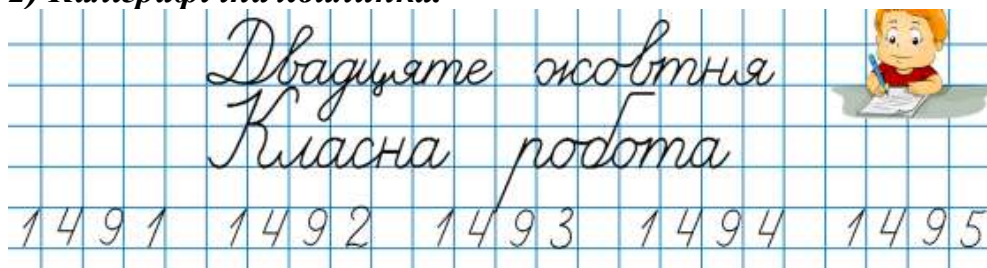 2) Каліграфічна хвилинка.
Двадцяте жовтня
Класна робота
1491 1492 1493 1494 1495